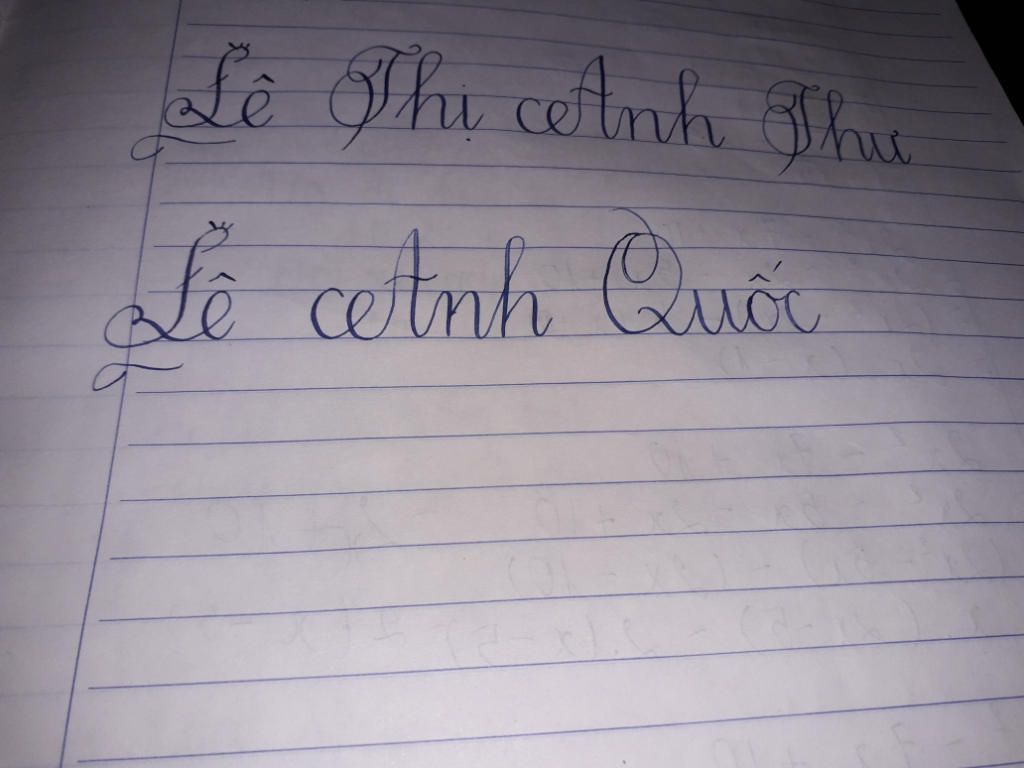 Lê Thị Anh Thư
Lê Anh Quốc